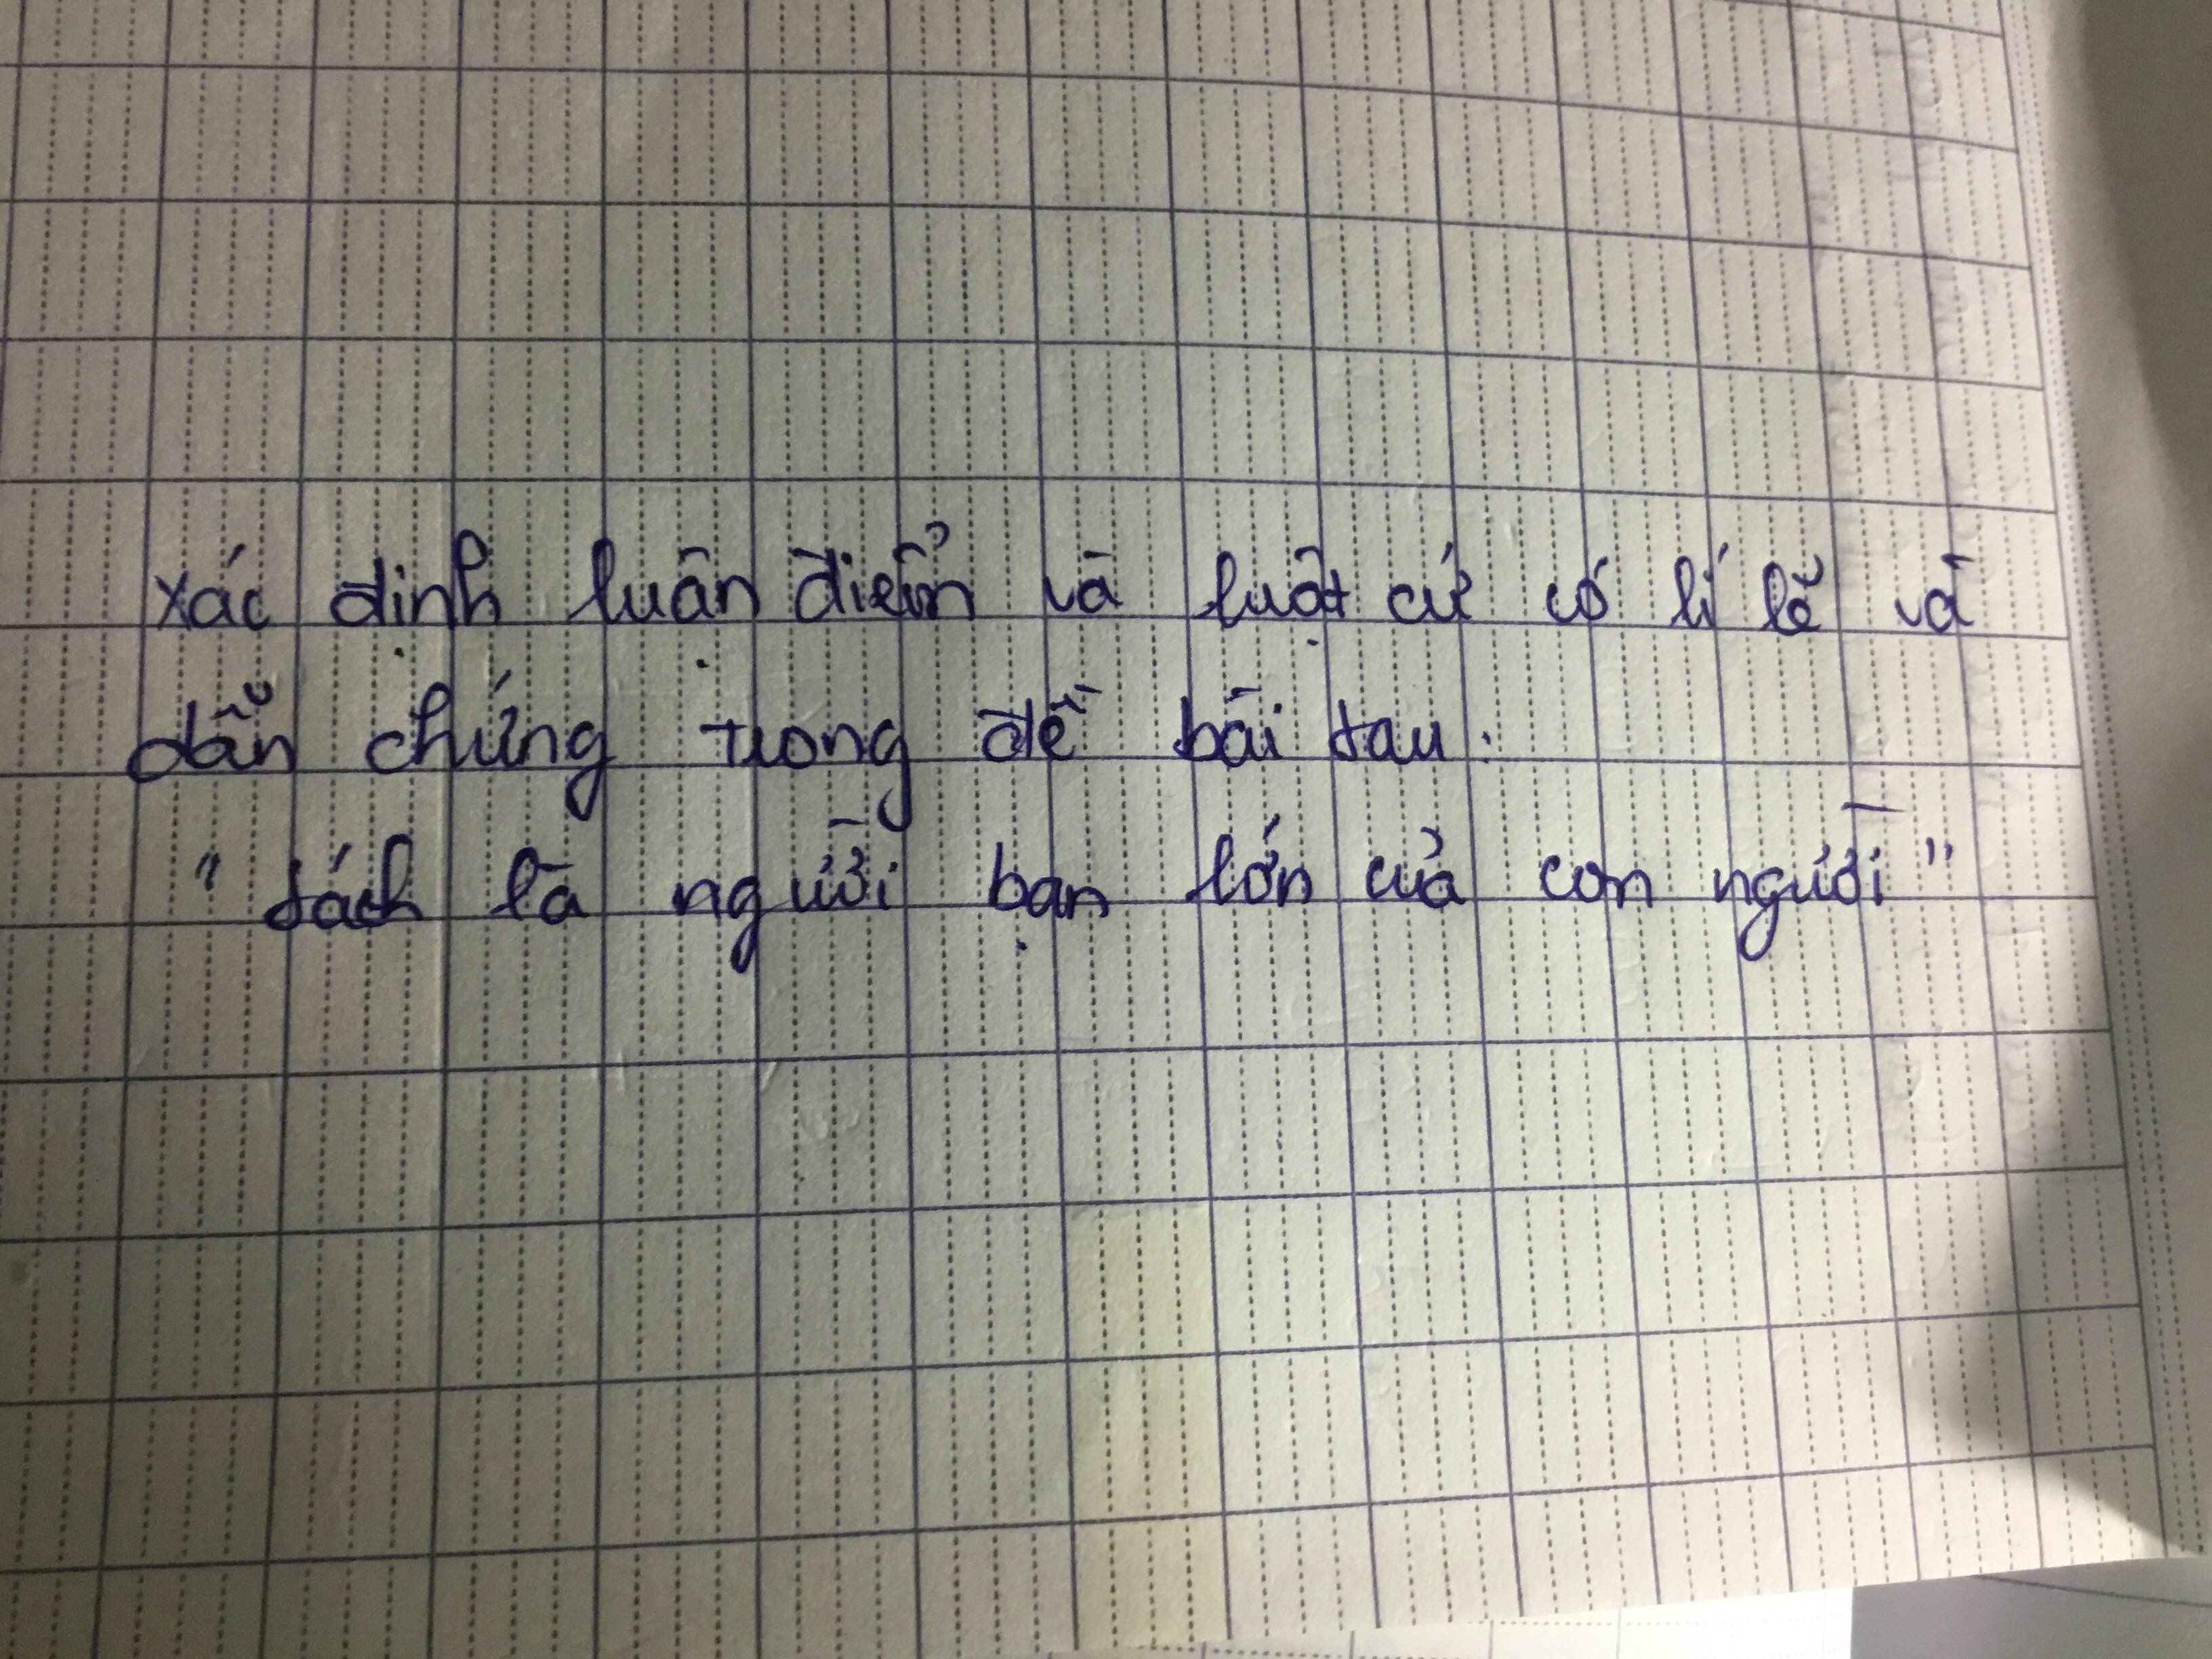 Xác định luận điểm và luột cứ có lí lẽ và
dẫn chứng trong đề bài sau:
" sách là người bạn lớn của con người"